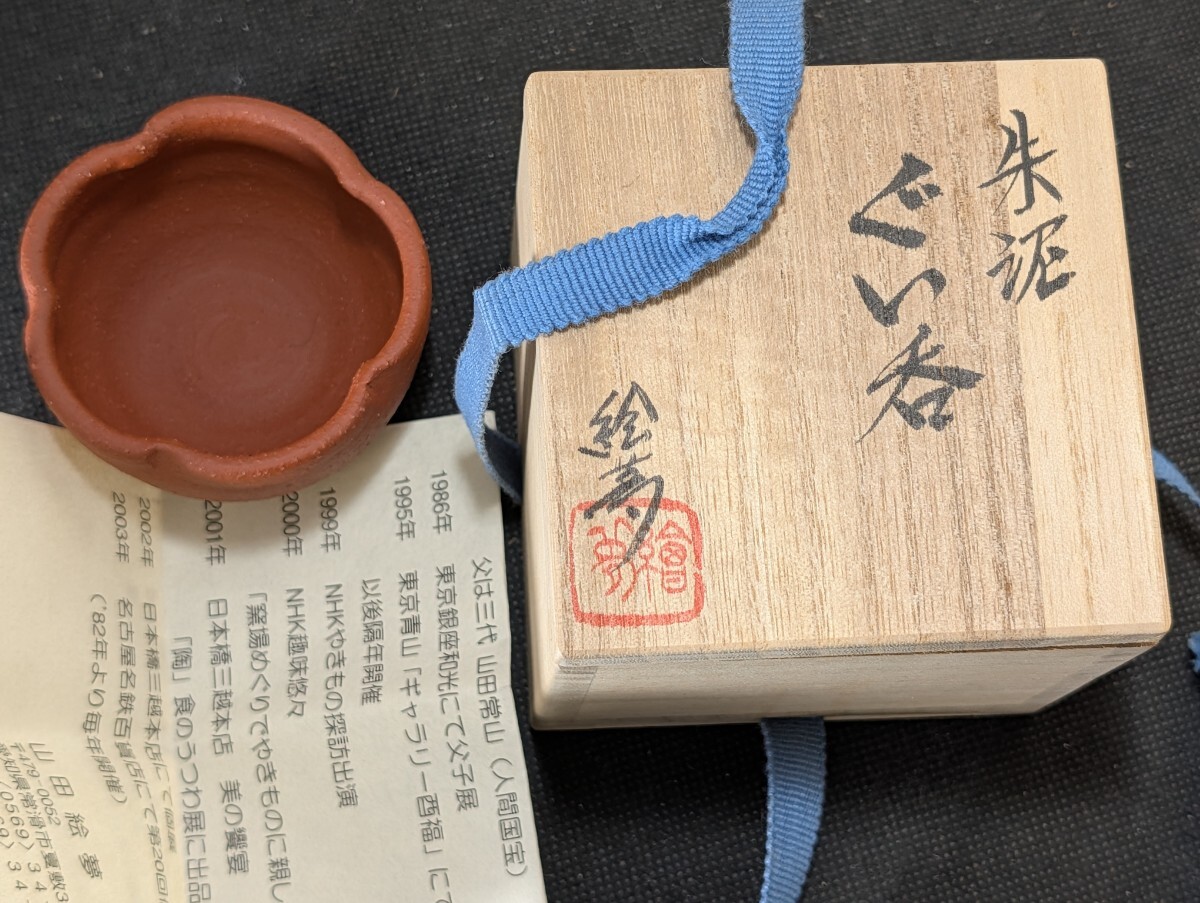 朱泥
ぐい呑
絵夢
父は三代 山田常山（人間国宝）
1986年 東京銀座和光にて父子展
1995年 東京青山「ギャラリー酉福」にて
以後隔年開催
1999年 NHKやきもの探訪出演
2000年 NHK趣味悠々
「窯場めぐりでやきものに親し
2001年 日本橋三越本店 美の饗宴
「陶」食のうつわ展に出品
2002年 日本橋三越本店にて個展
2003年 名古屋名鉄百貨店にて第20回
（'82年より毎年開催）
山田絵夢
〒479-0052
愛知県常滑市
(0569) 34